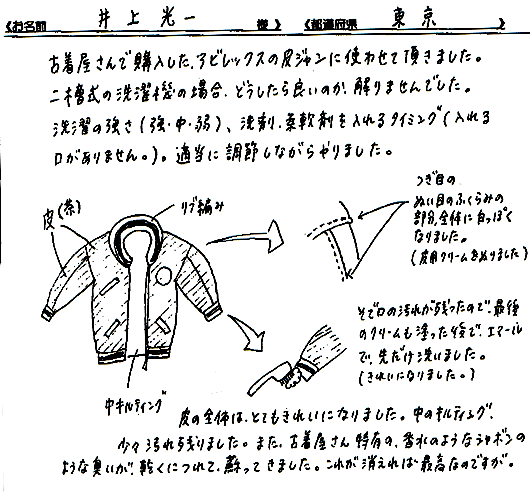 《お名前 井上光一 様》《都道府県 東京 》
古着屋さんで購入した、アビレックスの皮ジャンに使わせて頂きました。
二槽式の洗濯機の場合、どうしたら良いのか、解りませんでした。
洗濯の強さ(強・中・弱)、洗剤、柔軟剤を入れるタイミング(入れる
口がありません。)。適当に調節しながらやりました。
皮(茶)
リブ編み
中キルティング
つぎ目の
ぬい目のふくらみの
部分、全体に白っぽく
なりました。
(皮用クリームをぬりました)
そで口の汚れが残ったので、最後
のクリームも塗った後で、エマール
で、先だけ洗いました。
(きれいになりました。)
皮の全体は、とてもきれいになりました。中のキルディング、
少々汚れ残りました。また、古着屋さん特有の、香水のようなシャボンの
ような臭いが、乾くにつれて、蘇ってきました。これが消えれば最高なのですが。